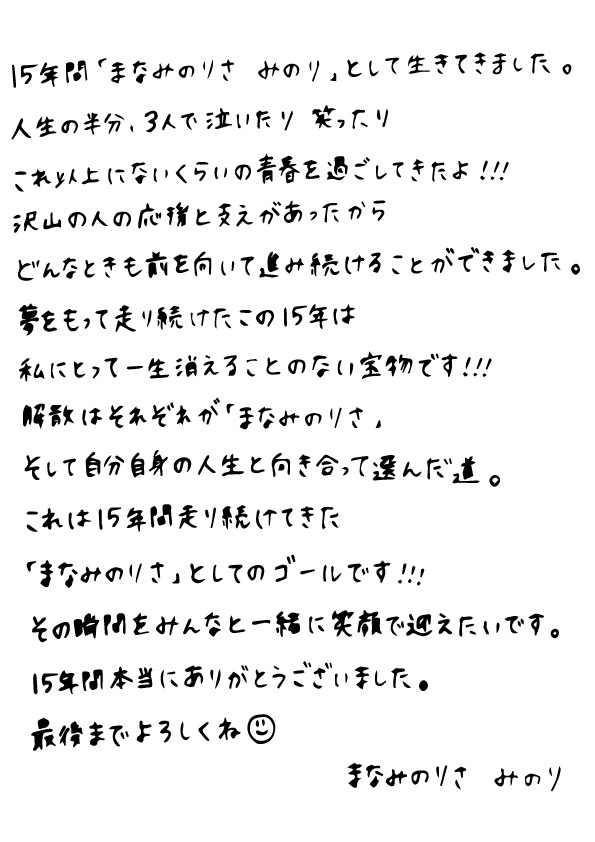 15年間「まなみのりさ みのり」として生きてきました。
人生の半分、3人で泣いたり 笑ったり
これ以上にないくらいの青春を過ごしてきたよ!!!
沢山の人の応援と支えがあったから
どんなときも前を向いて進み続けることができました。
夢をもって走り続けたこの15年は
私にとって一生消えることのない宝物です!!!
解散はそれぞれが「まなみのりさ」
そして自分自身の人生と向き合って選んだ道。
これは15年間走り続けてきた
「まなみのりさ」としてのゴールです!!!
その瞬間をみんなと一緒に笑顔で迎えたいです。
15年間本当にありがとうございました。
最後までよろしくね☺
まなみのりさ みのり